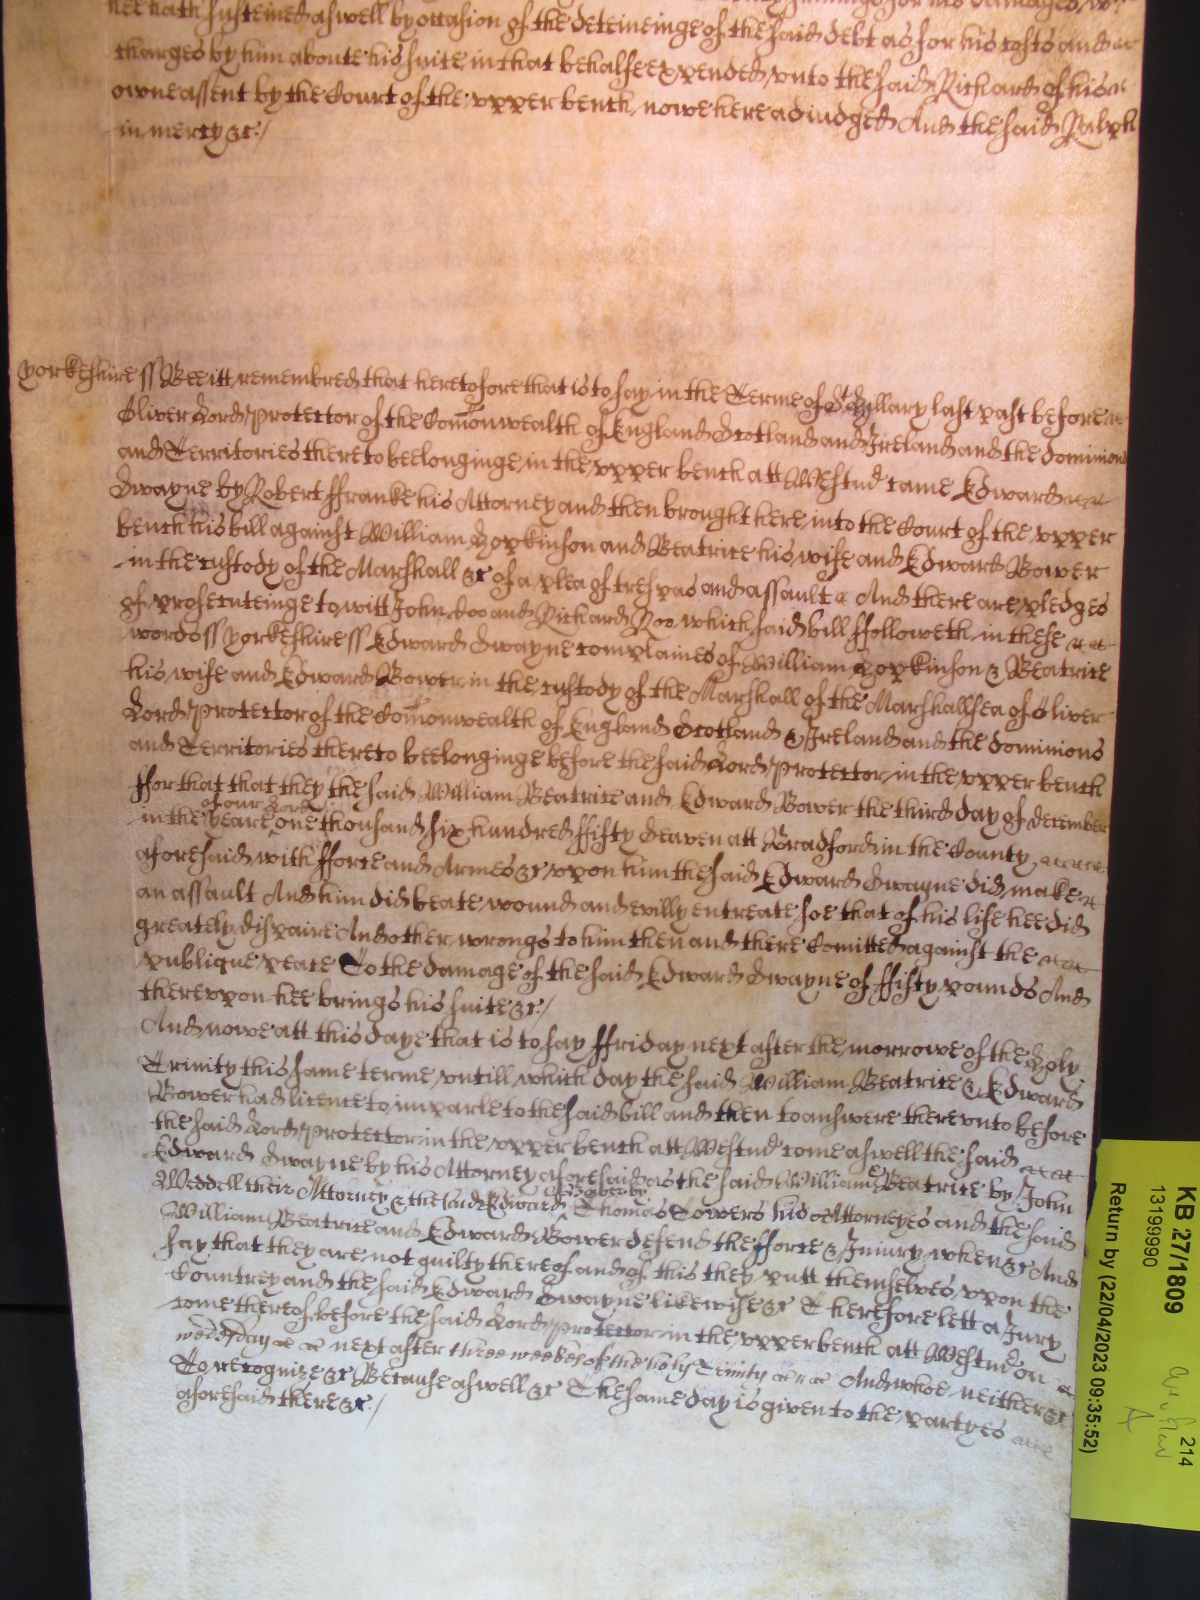 hee hath susteined aswell by occasion of the deteineinge of the said debt as for his costs and
charges by him aboute his suite in that behalfe expended, vnto the said Richard of his
owne assent by the Court of the vpper bench nowe here adiudged And the said Ralph
in mercy &c./
Yorkeshire ss Bee itt remembred that heretofore that is to say in the Terme of St Hillary last past before
Oliver Lord Protector of the Comonwealth of England Scotland and Ireland and the dominions
and Territories thereto beelonginge in the vpper bench att Westmr came Edward
Swayne by Robert ffranke his Attorney and then brought here into the Court of the vpper
bench his bill against William Hopkinson and Beatrice his wife and Edward Bower
in the custody of the Marshall &c of a plea of trespas and assault And there are pledges
of prosecuteinge to witt John Doo and Richard Roo which said bill ffolloweth in these
words ss Yorkeshire ss Edward Swayne complaines of William Hopkinson & Beatrice
his wife and Edward Bower in the custody of the Marshall of the Marshallsea of Oliver
Lord Protector of the Comonwealth of England Scotland & Ireland and the dominions
and Territories thereto beelonginge before the said Lord Protector in the vpper bench
ffor that that they the said William Beatrice and Edward Bower the third day of december
of our Lord
in the yeare one thousand six hundred ffifty Seaven att Bradford in the County
aforesaid with fforce and Armes &c vpon him the said Edward Swayne did make
an assault And him did beate wound and evilly entreate soe that of his life hee did
greately dispaire And other wrongs to him then and there Comitted against the
publique peace To the damage of the said Edward Swayne of ffifty pounds And
therevpon hee brings his suite &c./
And nowe att this daye that is to say ffriday next after the morrowe of the Holy
Trinity this same terme vntill which day the said William Beatrice & Edward
Bower had licence to imparle to the said bill and then to answere therevnto before
the said Lord Protector in the vpper bench att Westmr come aswell the said
Edward Swayne by his Attorney aforesaid as the said William & Beatrice by John
Weddell their Attorney & the said Edward Bower by Thomas Towers his Attorneyes and the said
William Beatrice and Edward Bower defend the fforce & Iniury when &c And
say that they are not guilty thereof and of this they putt themselves vpon the
Countrey and the said Edward Swayne likewise &c Therefore lett a Jury
come thereof before the said Lord Protector in the vpper bench att Westmr on
wednsday next after three weekes of the holy Trinity And whoe neither &c
To recognize &c Because aswell &c The same day is given to the partyes
aforesaid there &c./
KB 27/1809
13199990
Return by (22/04/2023 09:35:52)
214
A